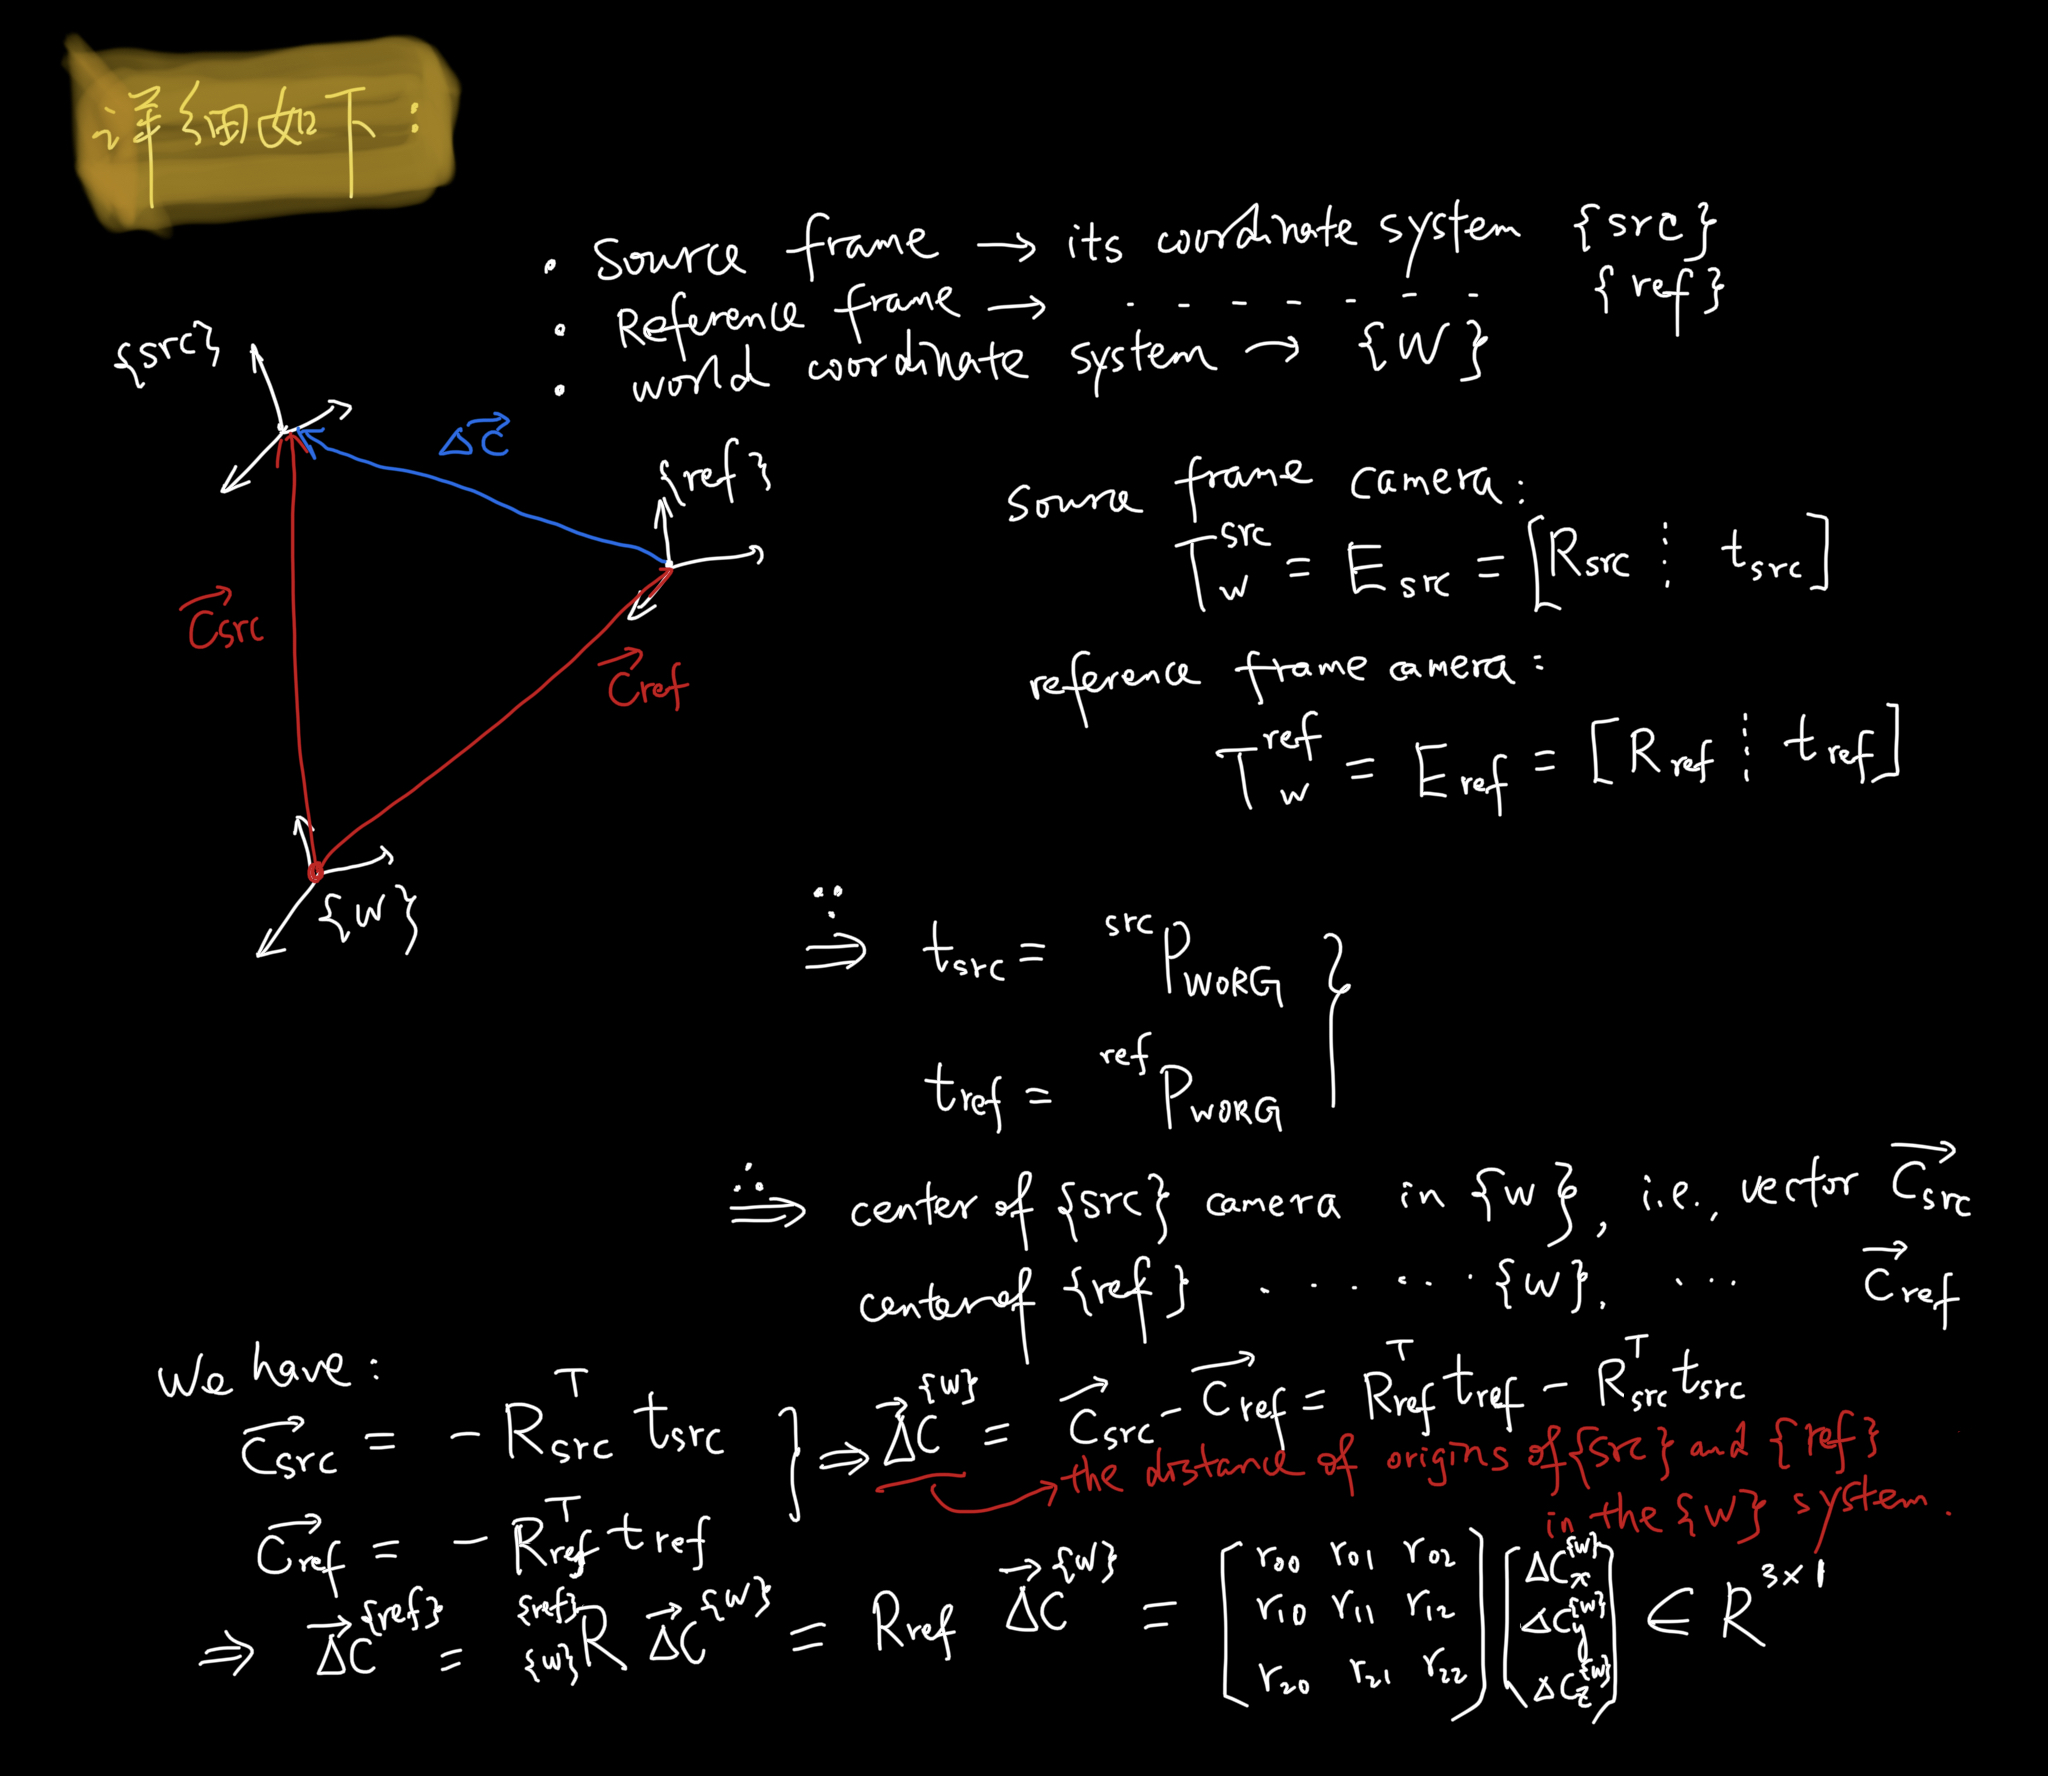 详细如下：
• Source frame → its coordinate system {src}
• Reference frame → - - - - - - - {ref}
• world coordinate system → {W}
{src}
ΔC⃗
{ref}
C⃗src
C⃗ref
{W}
Source frame camera:
T_w^src = E_src = [R_src ⋮ t_src]
reference frame camera:
T_w^ref = E_ref = [R_ref ⋮ t_ref]
∵ ⇒ t_src = ^src P_WORG }
t_ref = ^ref P_WORG
∴ ⇒ center of {src} camera in {w}, i.e., vector C⃗_src
center of {ref} · · · · · · {w}, ... C⃗_ref
We have:
C⃗_src = - R_src^T t_src } ⇒ ΔC⃗^{w} = C⃗_src - C⃗_ref = R_ref^T t_ref - R_src^T t_src
→ the distance of origins of {src} and {ref}
in the {w} system.
C⃗_ref = - R_ref^T t_ref
⇒ ΔC⃗^{ref} = ^{ref}_{w}R ΔC⃗^{w} = R_ref ΔC⃗^{w} = [r00 r01 r02 r10 r11 r12 r20 r21 r22] [ΔC_x^{w} ΔC_y^{w} ΔC_z^{w}] ∈ R^3×1